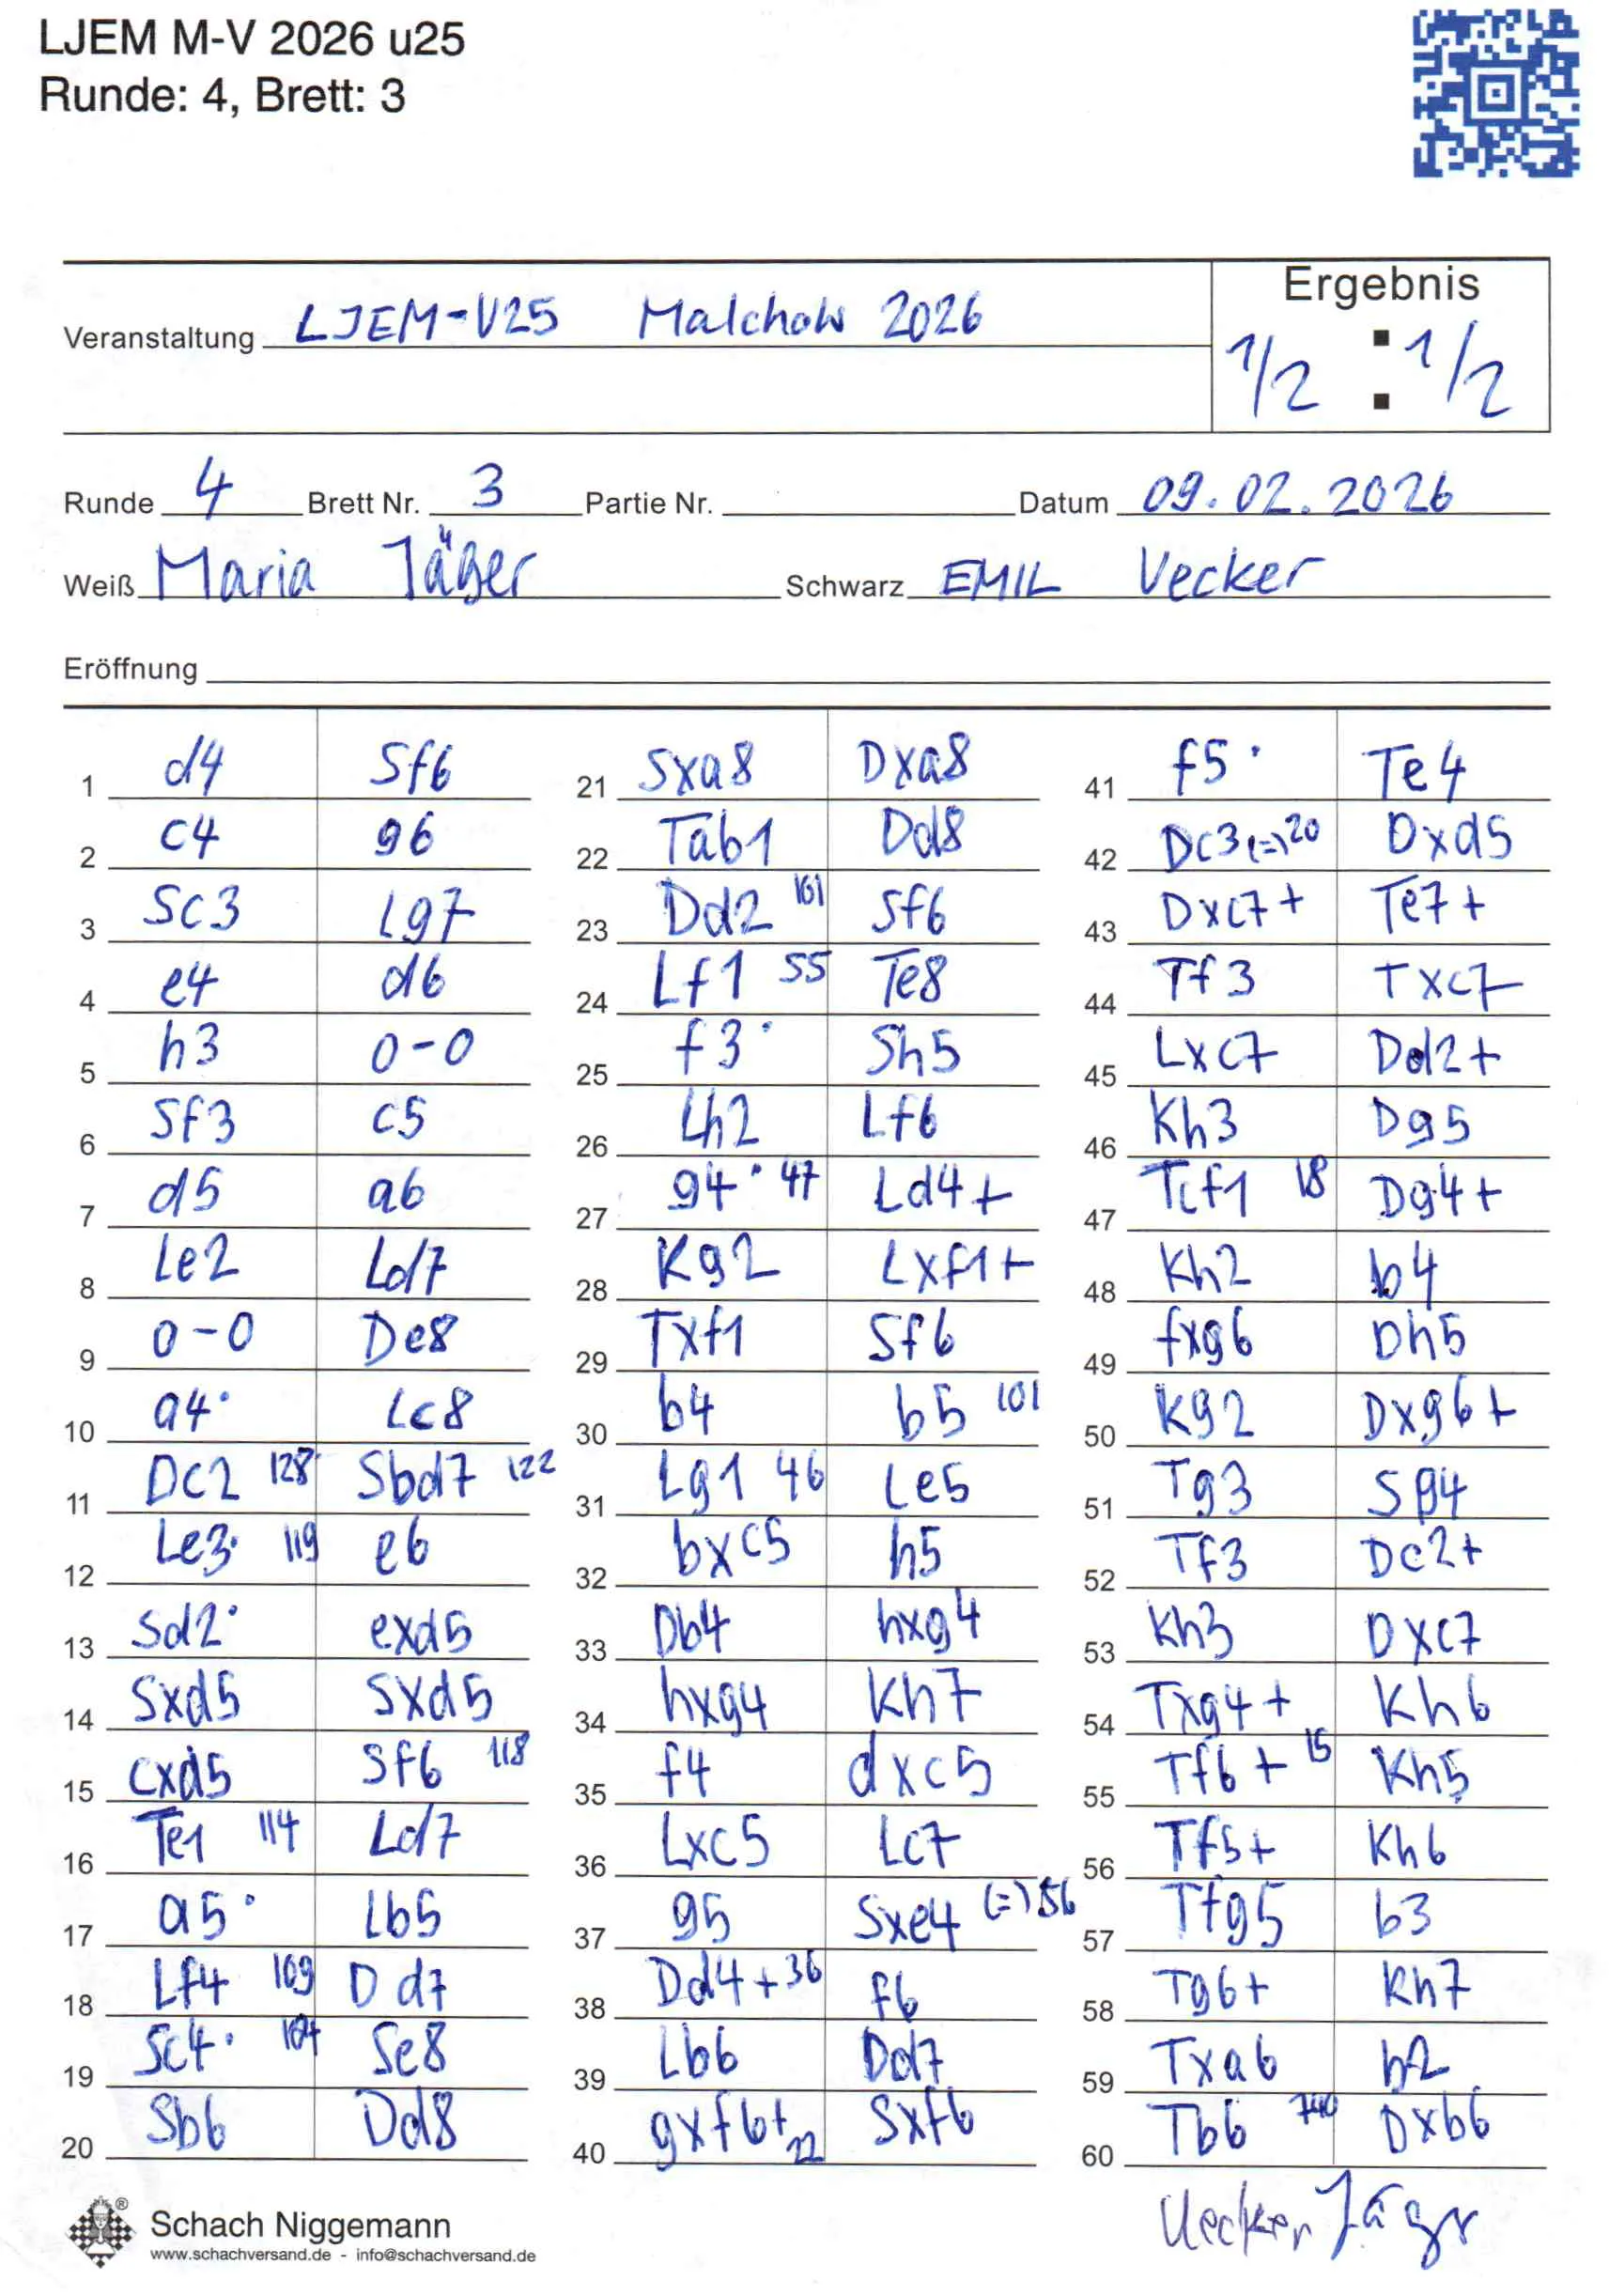 LJEM M-V 2026 u25
Runde: 4, Brett: 3
Ergebnis
Veranstaltung LJEM-U25 Malchow 2026
1/2 : 1/2
Runde 4 Brett Nr. 3 Partie Nr. Datum 09.02.2026
Weiß Maria Jäger Schwarz EMIL Uecker
Eröffnung
1 d4 Sf6
2 c4 g6
3 Sc3 Lg7
4 e4 d6
5 h3 0-0
6 Sf3 c5
7 d5 a6
8 Le2 Ld7
9 0-0 De8
10 a4· Lc8
11 Dc2 128 Sbd7 122
12 Le3· 119 e6
13 Sd2· exd5
14 Sxd5 Sxd5
15 cxd5 Sf6 118
16 Te1 114 Ld7
17 a5· Lb5
18 Lf4 109 Dd7
19 Sc4· 104 Se8
20 Sb6 Dd8
21 Sxa8 Dxa8
22 Tab1 Dd8
23 Dd2 101 Sf6
24 Lf1 55 Te8
25 f3· Sh5
26 Lh2 Lf6
27 g4· 47 Ld4+
28 Kg2 Lxf1+
29 Txf1 Sf6
30 b4 b5 101
31 Lg1 46 Le5
32 bxc5 h5
33 Db4 hxg4
34 hxg4 Kh7
35 f4 dxc5
36 Lxc5 Lc7
37 g5 Sxe4 (=) 56
38 Dd4+ 36 f6
39 Lb6 Dd7
40 gxf6+ 22 Sxf6
41 f5· Te4
42 Dc3 (=) 20 Dxd5
43 Dxc7+ Te7+
44 Tf3 Txc7
45 Lxc7 Dd2+
46 Kh3 Dg5
47 Tcf1 18 Dg4+
48 Kh2 b4
49 fxg6 Dh5
50 Kg2 Dxg6+
51 Tg3 Sg4
52 Tf3 Dc2+
53 Kh3 Dxc7
54 Txg4+ Kh6
55 Tf6+ 15 Kh5
56 Tf5+ Kh6
57 Tfg5 b3
58 Tg6+ Kh7
59 Txa6 b2
60 Tb6 Dxb6
Uecker Jäger
Schach Niggemann
www.schachversand.de - info@schachversand.de